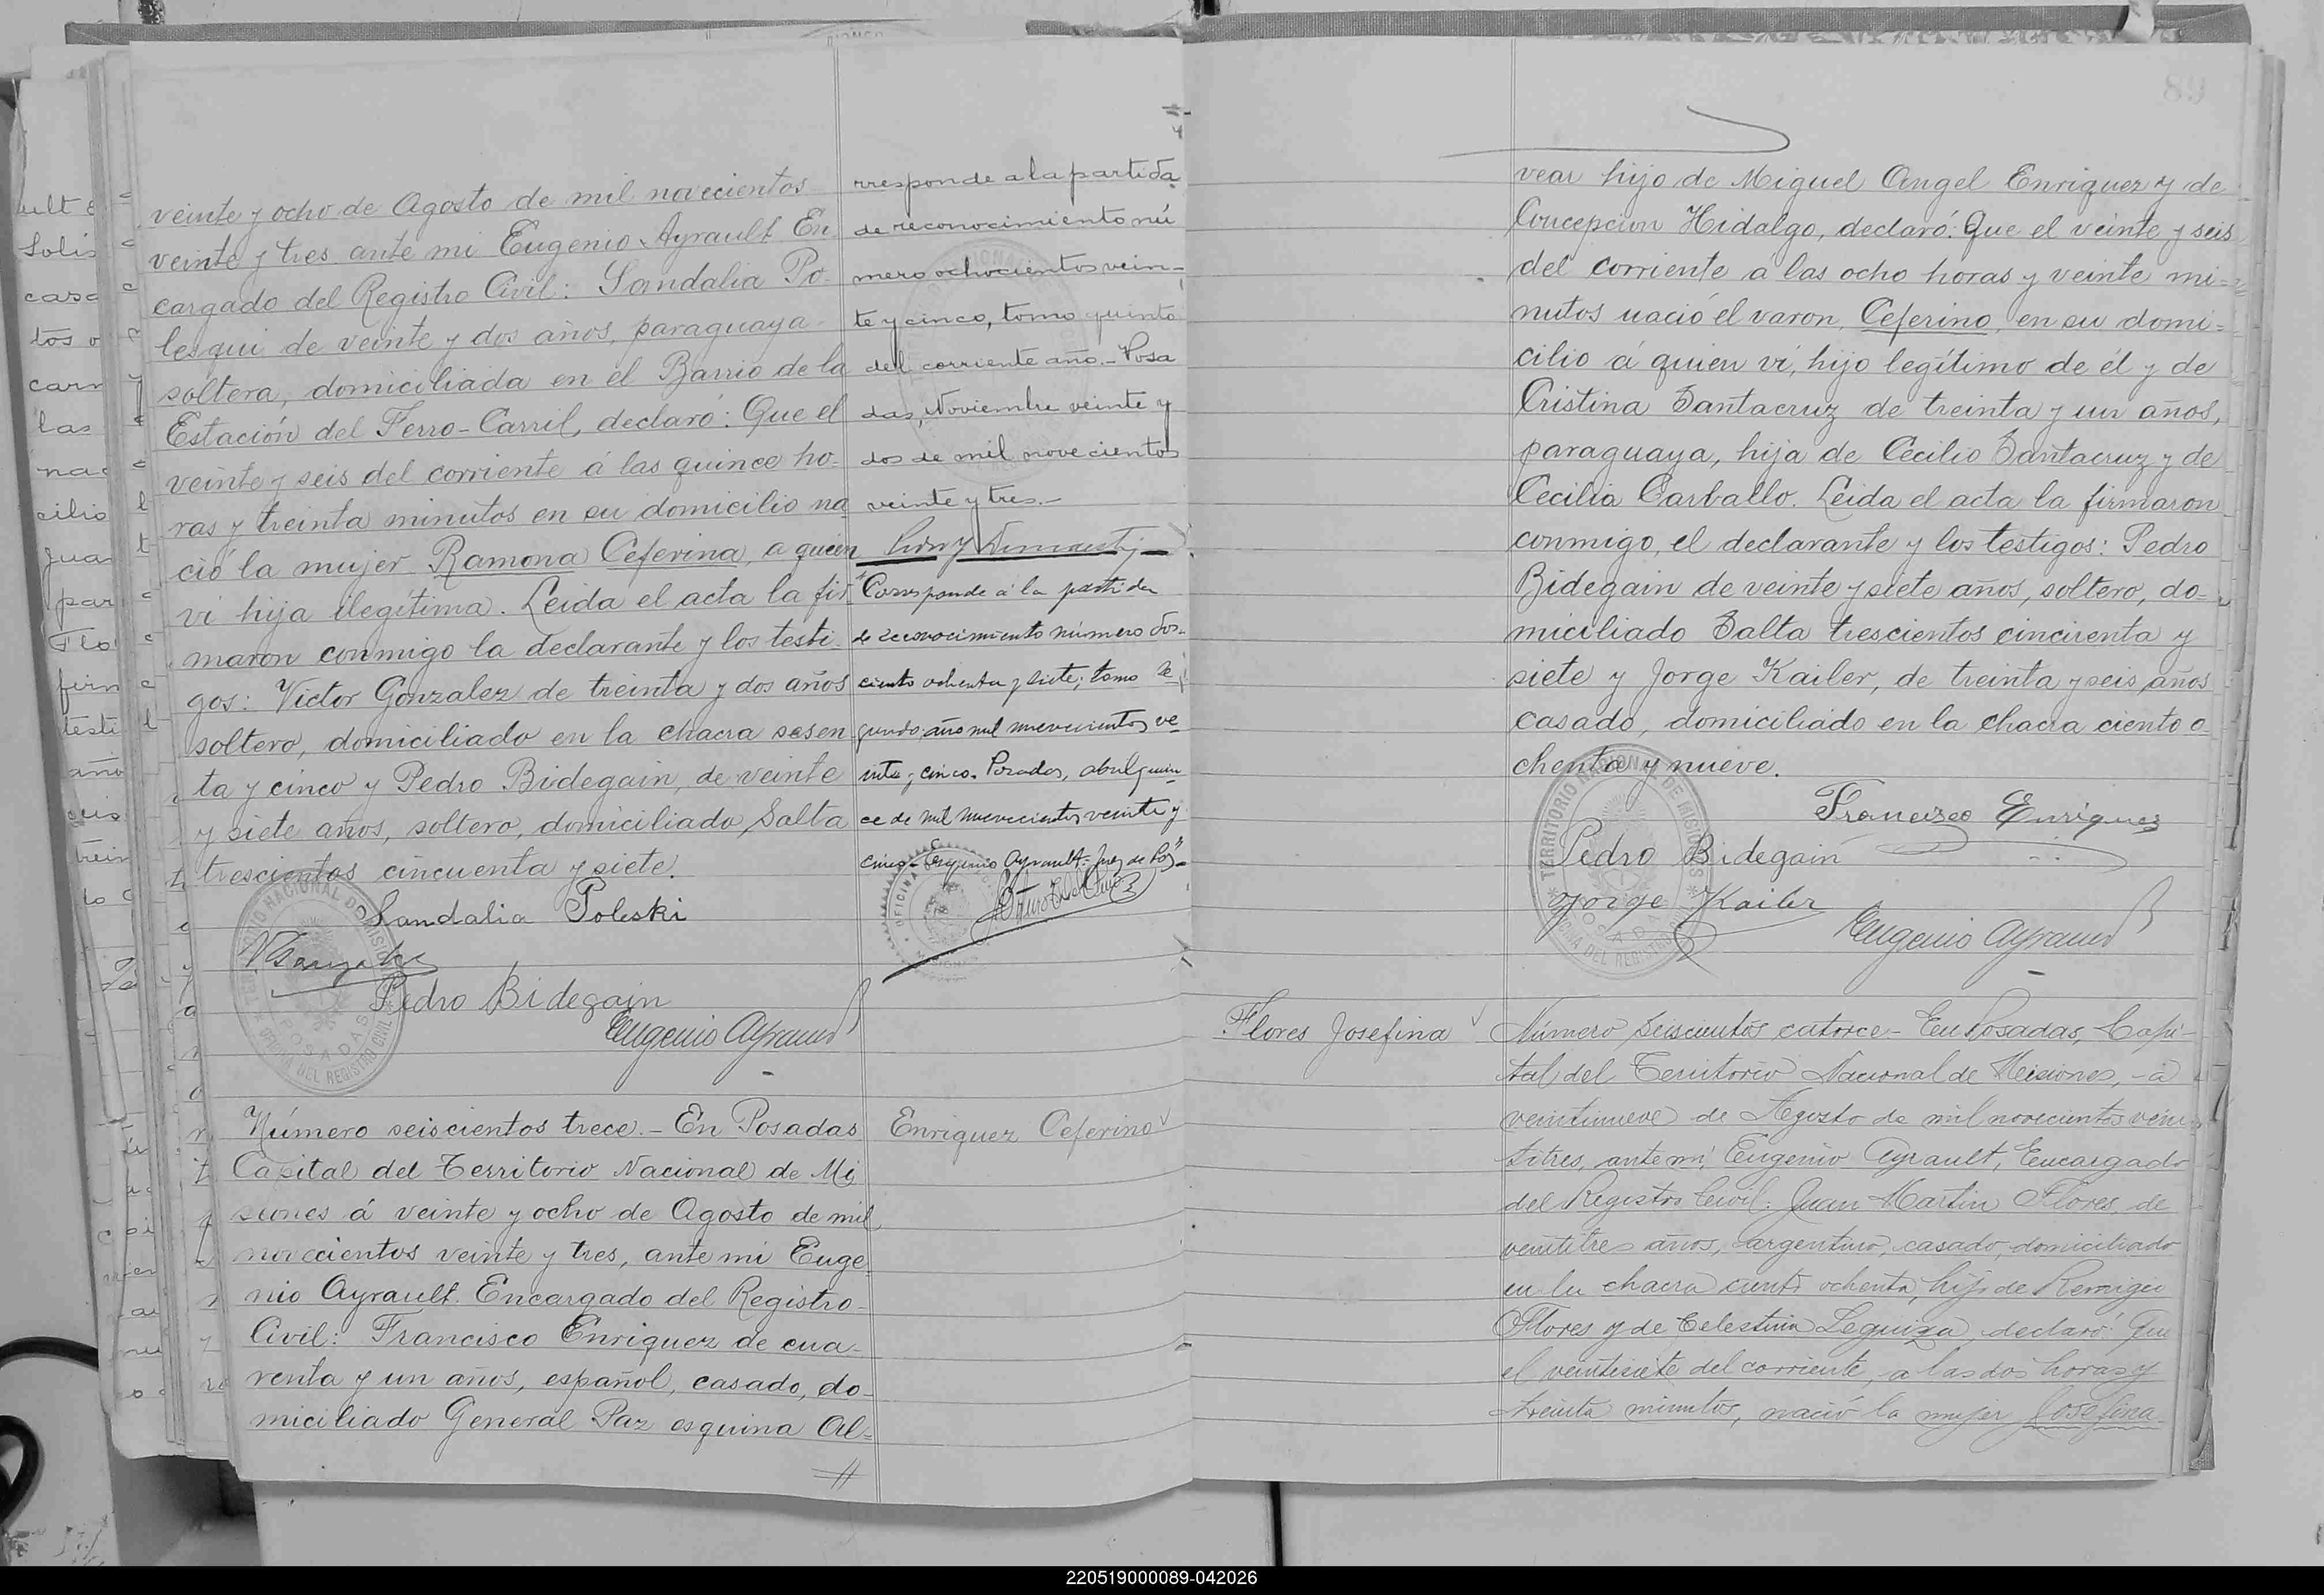 veinte y ocho de Agosto de mil novecientos
veinte y tres ante mi Eugenio Ayrault En
cargado del Registro Civil: Sandalia Po-
lesqui de veinte y dos años, paraguaya
soltera, domiciliada en el Barrio de la
Estación del Ferro-Carril, declaró: Que el
veinte y seis del corriente á las quince ho-
ras y treinta minutos en su domicilio na
ció la mujer Ramona Ceferina, a quien
vi hija ilegítima. Leida el acta la fir
maron conmigo la declarante y los testi-
gos: Victor Gonzalez de treinta y dos años
soltero, domiciliado en la chacra sesen
ta y cinco y Pedro Bidegain, de veinte
y siete años, soltero, domiciliado Salta
trescientos cincuenta y siete.
Sandalia Poleski
Pedro Bidegain
Eugenio Ayrault
rresponde a la partida
de reconocimiento nú
mero ochocientos vein-
te y cinco, tomo quinto
del corriente año.- Posa
das, Noviembre veinte y
dos de mil novecientos
veinte y tres.-
Corresponde á la partida
de reconocimiento número dos-
ciento ochenta y siete; tomo se
gundo, año mil nuevecientos ve
inte y cinco. Posadas, abril quin
ce de mil nuevecientos veinte y
cinco - Eugenio Ayrault - Juez de Paz
Número seiscientos trece.- En Posadas
Capital del Territorio Nacional de Mi
siones á veinte y ocho de Agosto de mil
novecientos veinte y tres, ante mi Euge
nio Ayrault. Encargado del Registro
Civil: Francisco Enriquez de cua-
renta y un años, español, casado, do-
miciliado General Paz esquina Al=
Enriquez Ceferino
89
vear hijo de Miguel Angel Enriquez y de
Concepcion Hidalgo, declaró: Que el veinte y seis
del corriente á las ocho horas y veinte mi=
nutos nació el varon, Ceferino, en su domi=
cilio á quien vi, hijo legítimo de él y de
Cristina Santacruz de treinta y un años,
paraguaya, hija de Cecilio Santacruz y de
Cecilia Carballo. Leida el acta la firmaron
conmigo, el declarante y los testigos: Pedro
Bidegain de veinte y siete años, soltero, do-
miciliado Salta trescientos cincuenta y
siete y Jorge Kailer, de treinta y seis años
casado, domiciliado en la chacra ciento o-
chenta y nueve.
Francisco Enriquez
Pedro Bidegain
Jorge Kailer
Eugenio Ayrault
TERRITORIO NACIONAL DE MISIONES
OFICINA DEL REGISTRO CIVIL
POSADAS
Flores Josefina
Número seiscientos catorce - En Posadas, Capi-
tal del Territorio Nacional de Misiones, - á
veintinueve de Agosto de mil novecientos vein
titres, ante mi, Eugenio Ayrault, Encargado
del Registro Civil: Juan Martin Flores, de
veintitres años, argentino, casado, domiciliado
en la chacra ciento ochenta, hijo de Remigio
Flores y de Celestina Leguiza, declaró: Que
el veintisiete del corriente, a las dos horas y
treinta minutos, nació la mujer Josefina
220519000089-042026